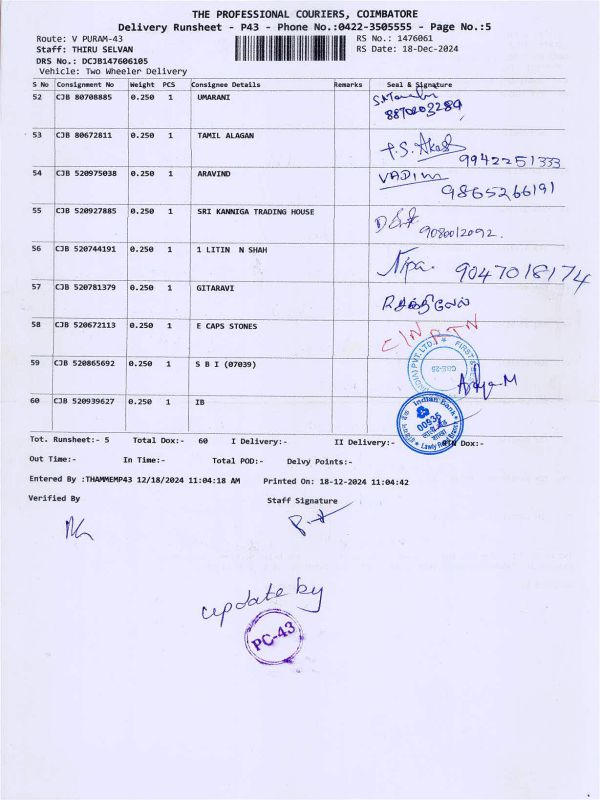 THE PROFESSIONAL COURIERS, COIMBATORE
Delivery Runsheet - P43 - Phone No.:0422-3505555 - Page No.:5
Route: V PURAM-43 RS No.: 1476061
Staff: THIRU SELVAN RS Date: 18-Dec-2024
DRS No.: DCJB147606105
Vehicle: Two Wheeler Delivery
S No Consignment No Weight PCS Consignee Details Remarks Seal & Signature
52 CJB 80708885 0.250 1 UMARANI
8870203289
53 CJB 80672811 0.250 1 TAMIL ALAGAN
T.S. Akash 9942251333
54 CJB 520975038 0.250 1 ARAVIND VADIM
9865266191
55 CJB 520927885 0.250 1 SRI KANNIGA TRADING HOUSE
9080012092.
56 CJB 520744191 0.250 1 1 LITIN N SHAH
Nipa. 9047018174
57 CJB 520781379 0.250 1 GITARAVI
58 CJB 520672113 0.250 1 E CAPS STONES
59 CJB 520865692 0.250 1 S B I (07039)
(VISION) PVT. LTD. * FIRST
CBE-25
Ardya M
60 CJB 520939627 0.250 1 IB
Indian Bank
00935
Lawly Road Branch
Tot. Runsheet:- 5 Total Dox:- 60 I Delivery:- II Delivery:- RTN Dox:-
Out Time:- In Time:- Total POD:- Delvy Points:-
Entered By :THAMMEMP43 12/18/2024 11:04:18 AM Printed On: 18-12-2024 11:04:42
Verified By Staff Signature
update by
PC-43